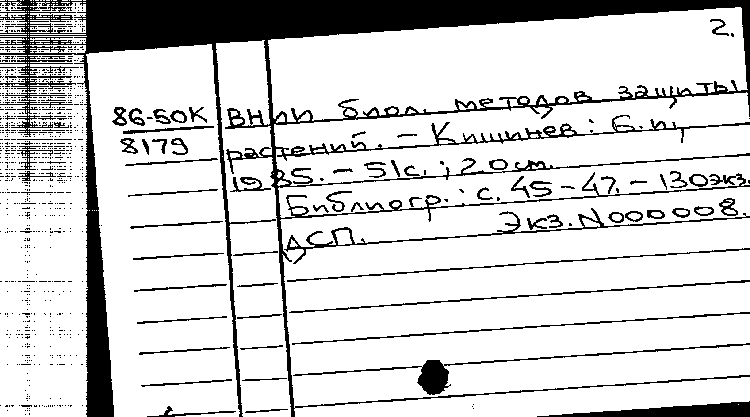 2.
86-50К ВНИИ биол. методов защиты
8179 растений. – Кишинев: Б.и.,
1985. – 51с.; 20см.
Библиогр.: с. 45-47. – 130экз.
ДСП. Экз.N000008.